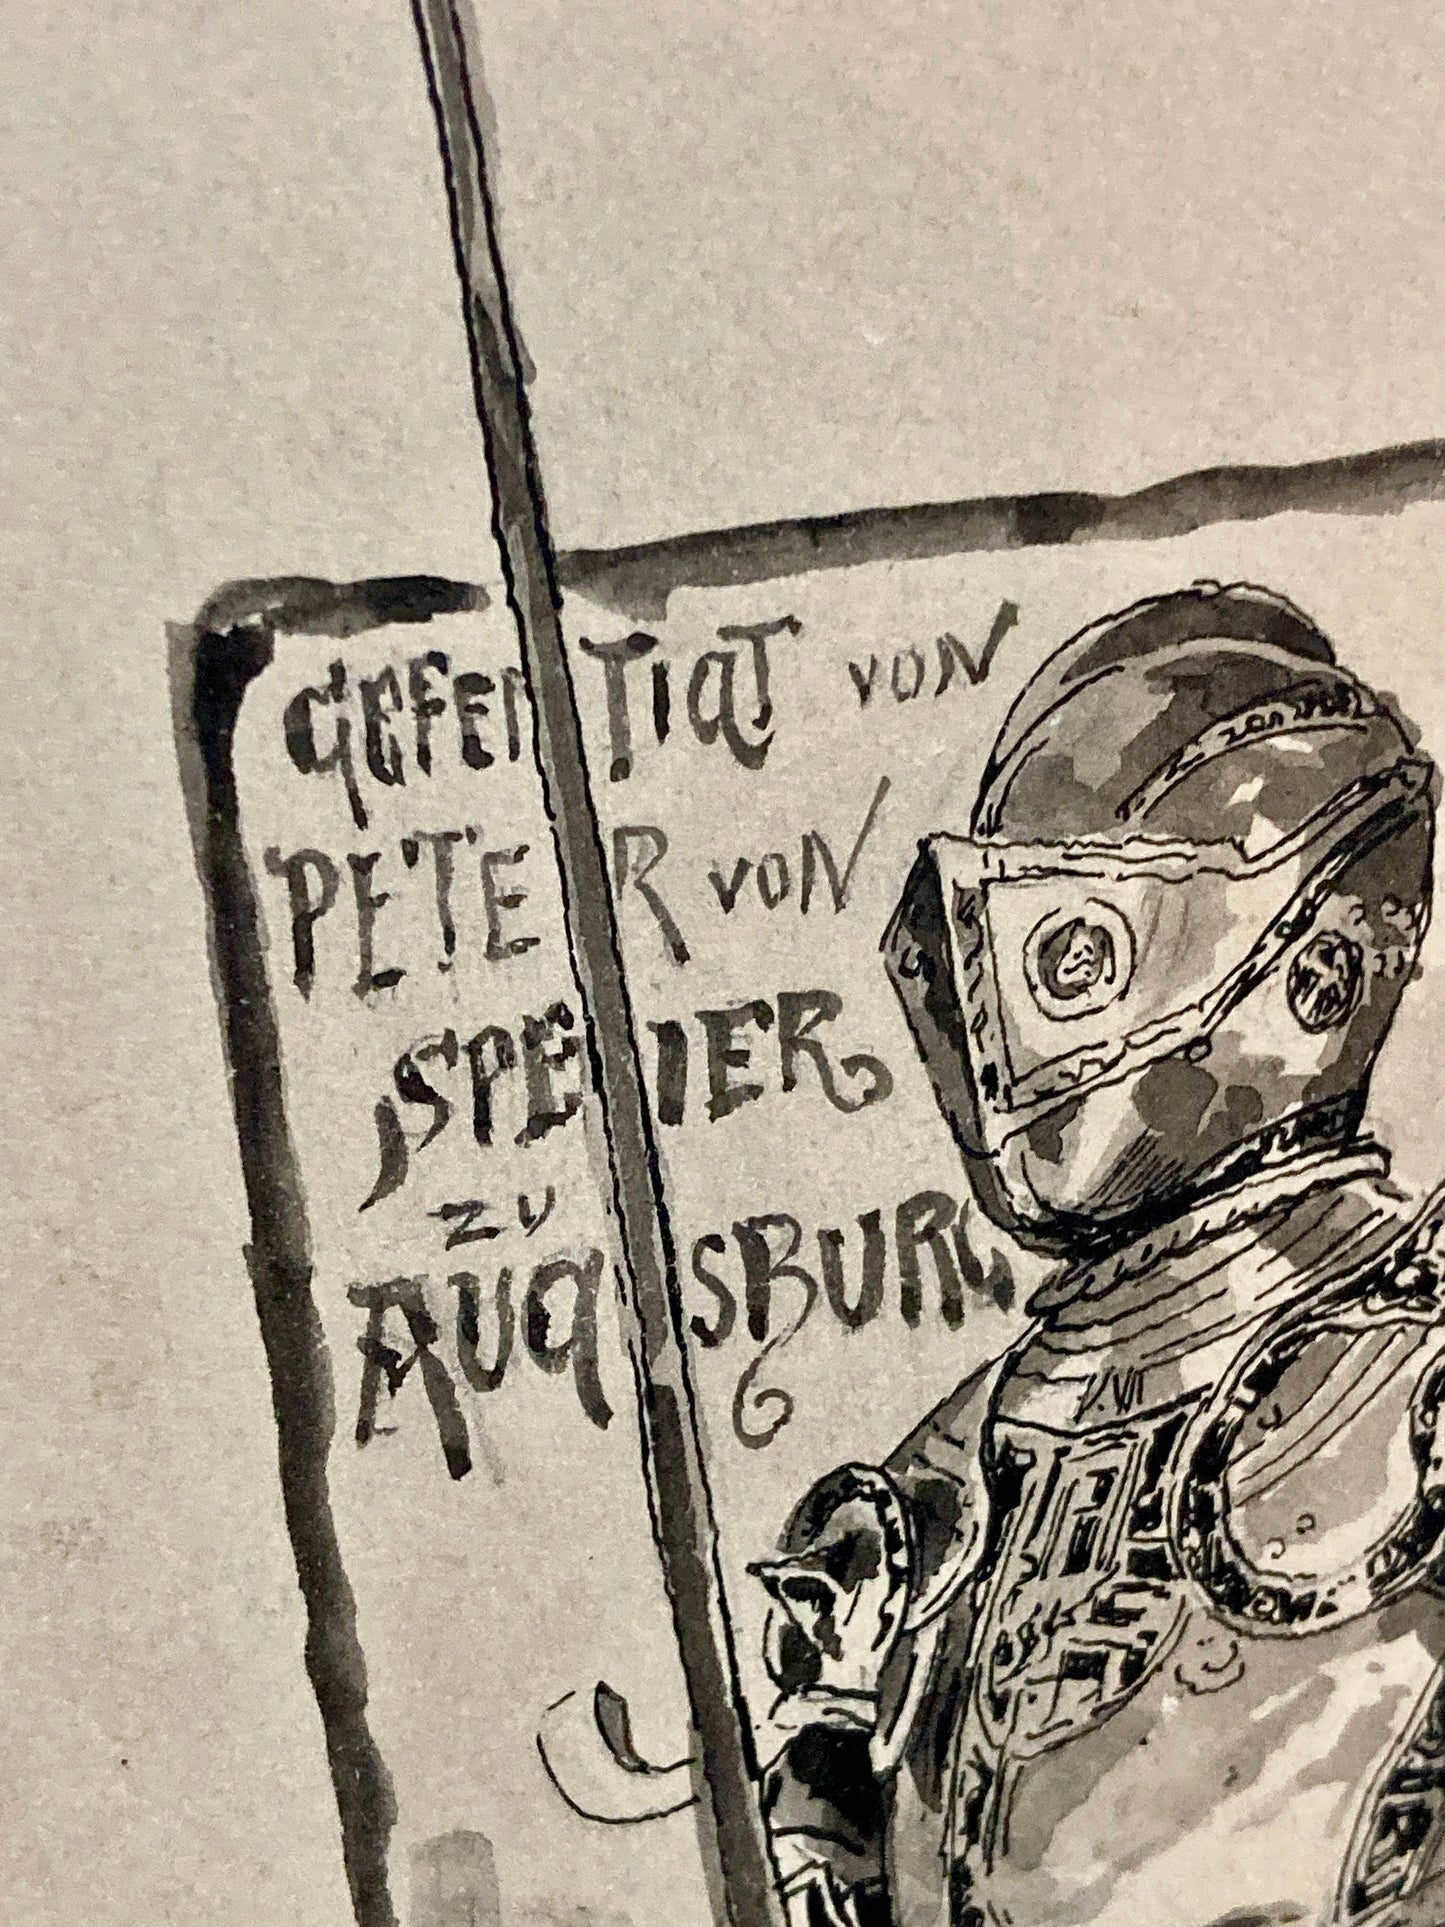 GEFERTIGT VON
PETER VON
SPEIER
ZU
AUGSBURG